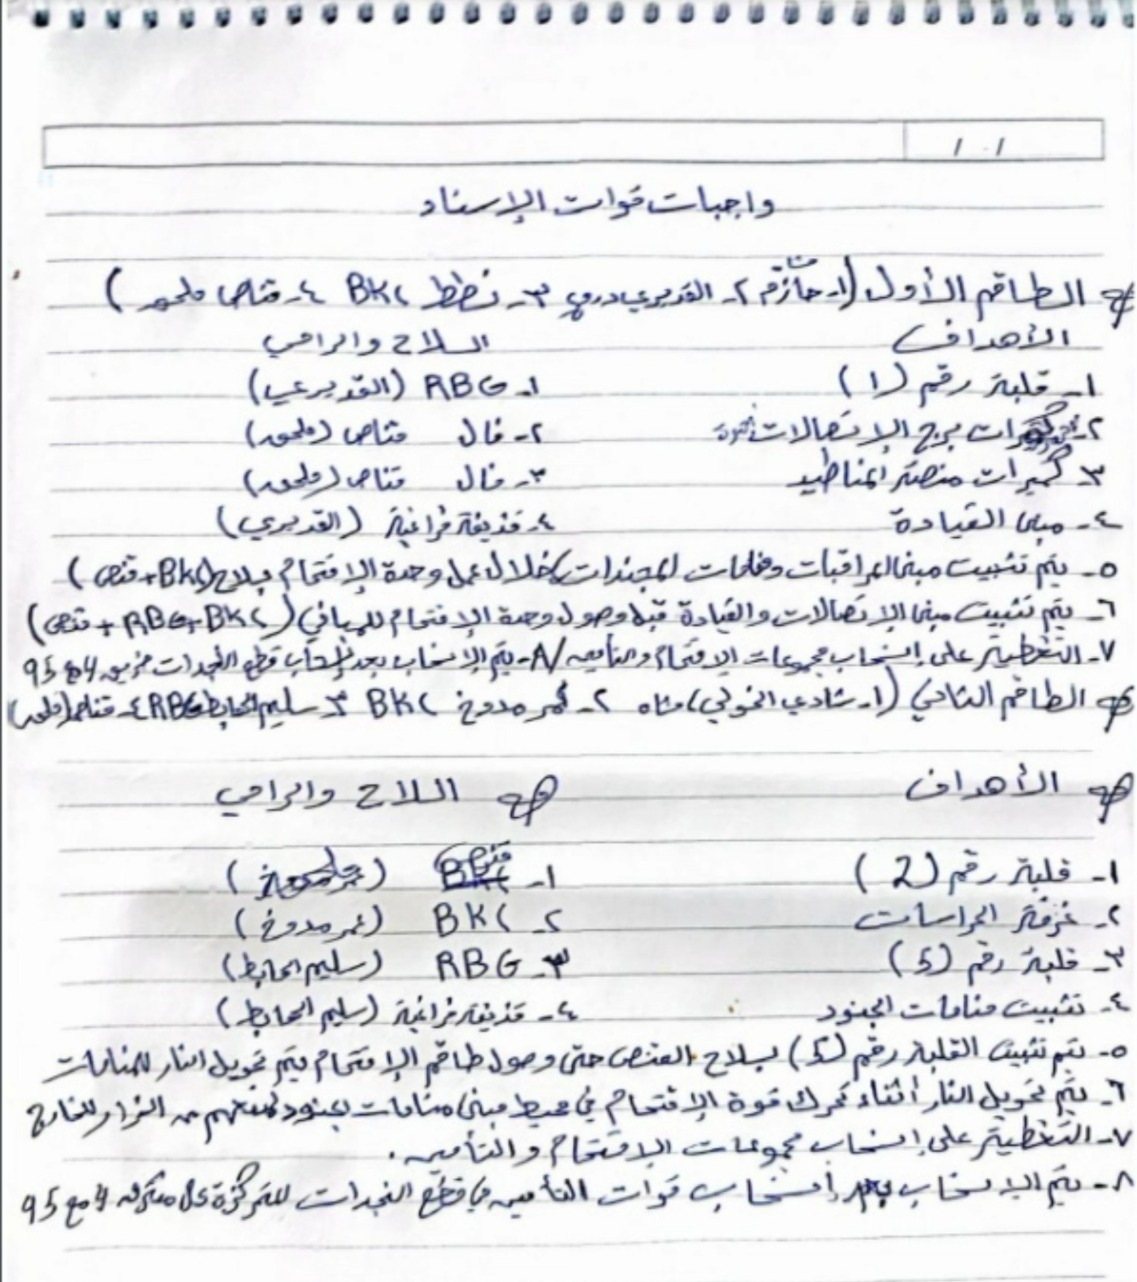 واجبات قوات الإسناد
الطاقم الأول (١- حازم ٢- القديري ٣- BKC ٤- قناص ملحمه)
الأهداف السلاح والرامي
١- قلبة رقم (١) ١- RBG (القديري)
٢- برج الإتصالات ٢- فال قناص (ملحمه)
٣- كميرات منصة المناطيد ٣- فال قناص (ملحمه)
٤- مبنى القيادة ٤- قذيفة فراغية (القديري)
٥- يتم تثبيت مبنى المراقبات ومنامات المجندات خلال عمل وحدة الإقتحام بسلاح (BKC + قنص)
٦- يتم تثبيت مبنى الإتصالات والقيادة قبل وصول وحدة الإقتحام للمباني (RBG + BKC + قنص)
٧- التغطية على إنسحاب مجموعات الإقتحام والتأمين / ٨- يتم الإنسحاب بعد قطع النجدات 4 مع 95
الطاقم الثاني (١- شادي الخولي ٢- BKC ٣- سليم RBG ٤- قناص)
الأهداف السلاح والرامي
١- قلبة رقم (2) ١- قنص
٢- غرفة الحراسات ٢- BKC
٣- قلبة رقم (5) ٣- RBG (سليم)
٤- تثبيت منامات الجنود ٤- قذيفة فراغية (سليم)
٥- يتم تثبيت القلبة رقم (5) بسلاح القنص حتى وصول طاقم الإقتحام يتم تحويل النار للمنامات
٦- يتم تحويل النار أثناء تحرك قوة الإقتحام في محيط مبنى منامات الجنود لمنعهم من الفرار للخارج
٧- التغطية على إنسحاب مجموعات الإقتحام والتأمين.
٨- يتم الإنسحاب بعد إنسحاب قوات التأمين قطع النجدات المتمركزة على 4 مع 95